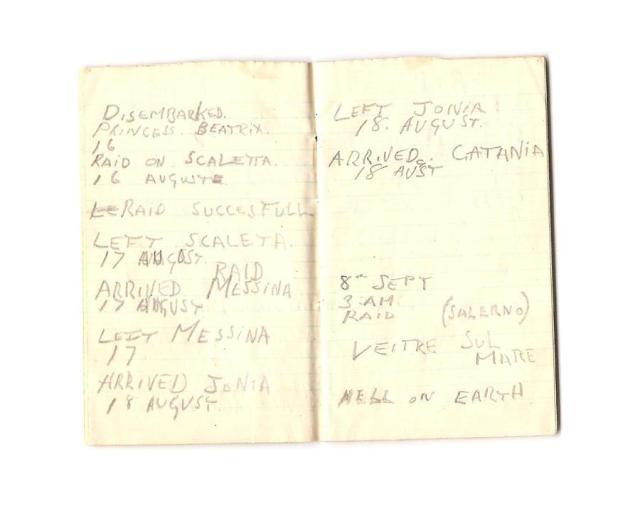 DISEMBARKED.
PRINCESS. BEATRIX.
16
RAID ON SCALETTA.
16 AUGUST
RAID SUCCESFULL
LEFT SCALETA.
17 AUGUST.
RAID
ARRIVED MESSINA
17 AUGUST
LEFT MESSINA
17
ARRIVED JONIA
18 AUGUST.
LEFT JONIA
18. AUGUST.
ARRIVED. CATANIA
18 AUST
8TH SEPT
3 AM
RAID (SALERNO)
VEITRE SUL
MARE
HELL ON EARTH